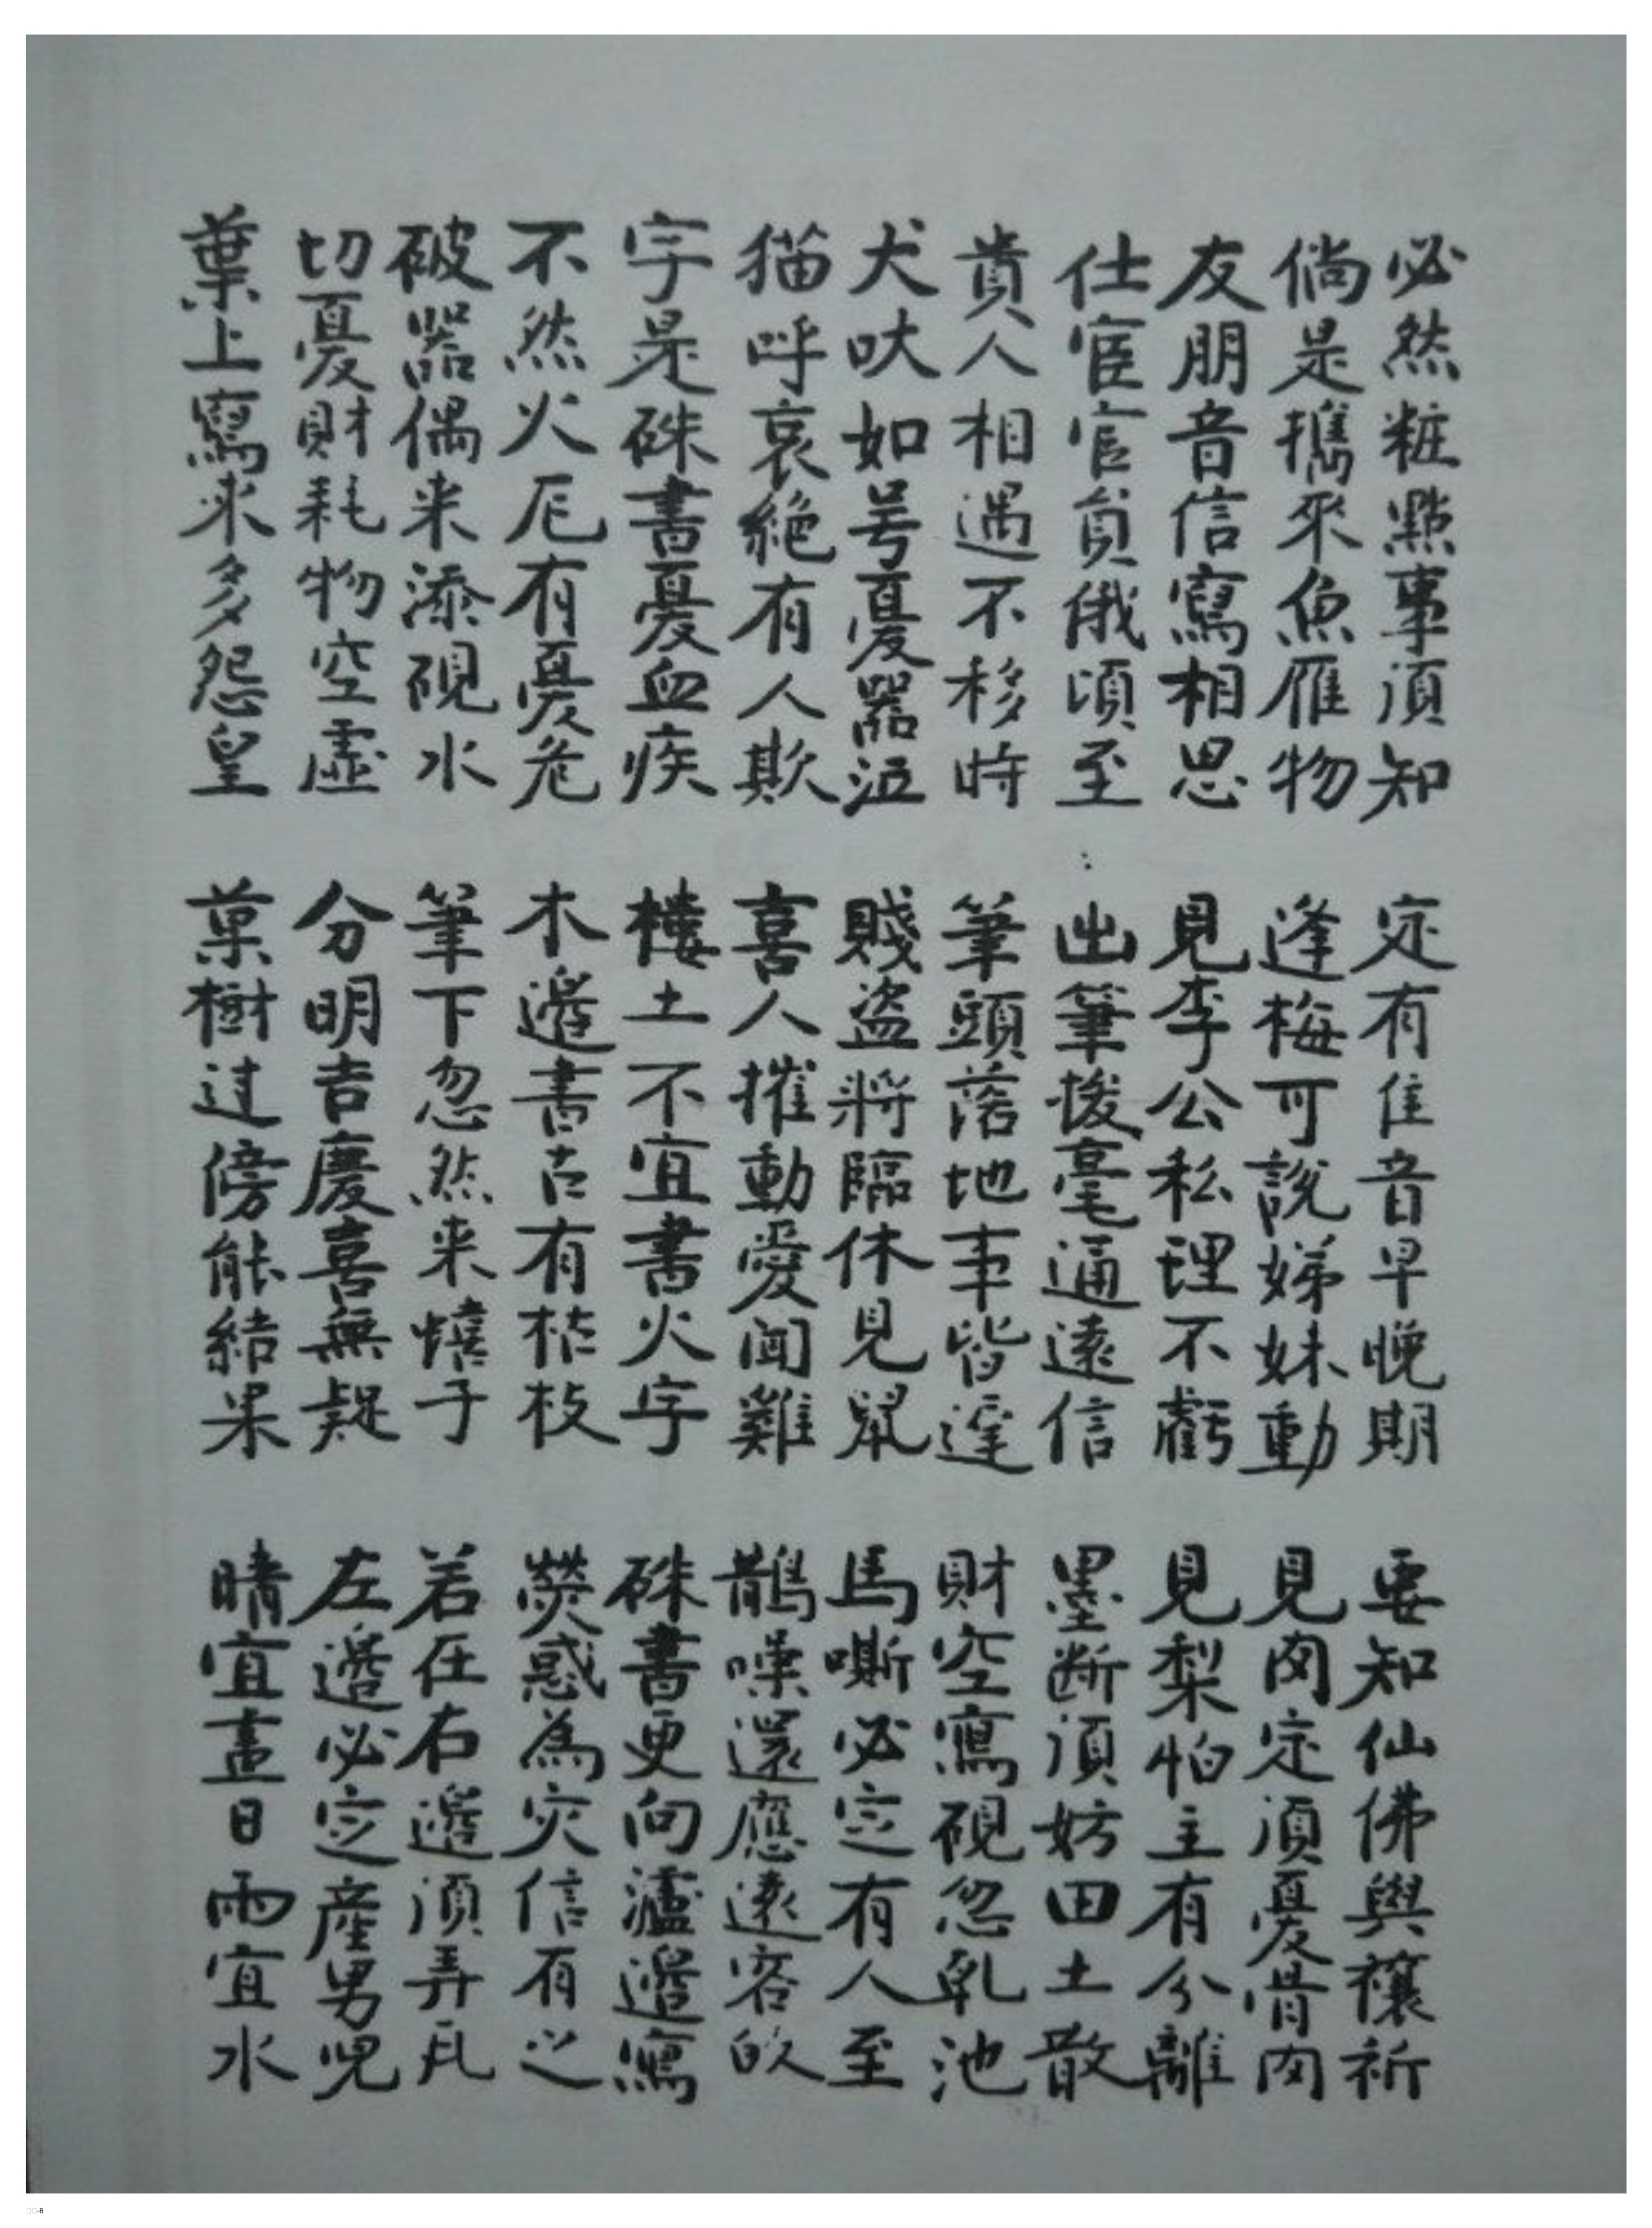 必然粧點事湏知
定有佳音早晚期
要知仙佛與禳祈
倘是攜來魚雁物
逢梅可說娣妹動
見肉定湏憂骨肉
友朋音信寫相思
見李公私理不虧
見梨怕主有分離
仕宦官員俄頃至
出筆撥毫通遠信
墨断湏妨田土散
貴人相遇不移時
筆頭落地事皆遲
財空寫硯忽乹池
犬吠如号憂器泣
賤盗將臨休見鼠
馬嘶必定有人至
猫呼哀絕有人欺
喜人摧動愛闻雞
鵲噪還應遠客的
字是硃書憂血疾
樓土不宜書火字
硃書更向瀘邊寫
不然火厄有憂危
木邊書古有枯枝
熒惑為灾信有之
破器偶来添硯水
筆下忽然来憘子
若在右邊湏弄瓦
切憂財耗物空虛
分明吉慶喜無疑
左邊必定產男兒
葉上寫來多怨皇
菓樹过傍能結果
晴宜畫日雨宜水